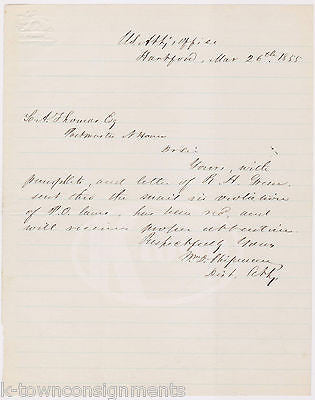 US Atty's Office
Hartford, Mar 26th 1855
L. A. Thomas Esq
Postmaster N Haven
Dr Sir
Yours, with
pamphlets, and letter of R. H. Green
sent thro the mail in violation
of P.O. laws, has been recd, and
will receive proper attention.
Respectfully Yours
Wm D. Shipman
Dist. Atty.
k-townconsignments